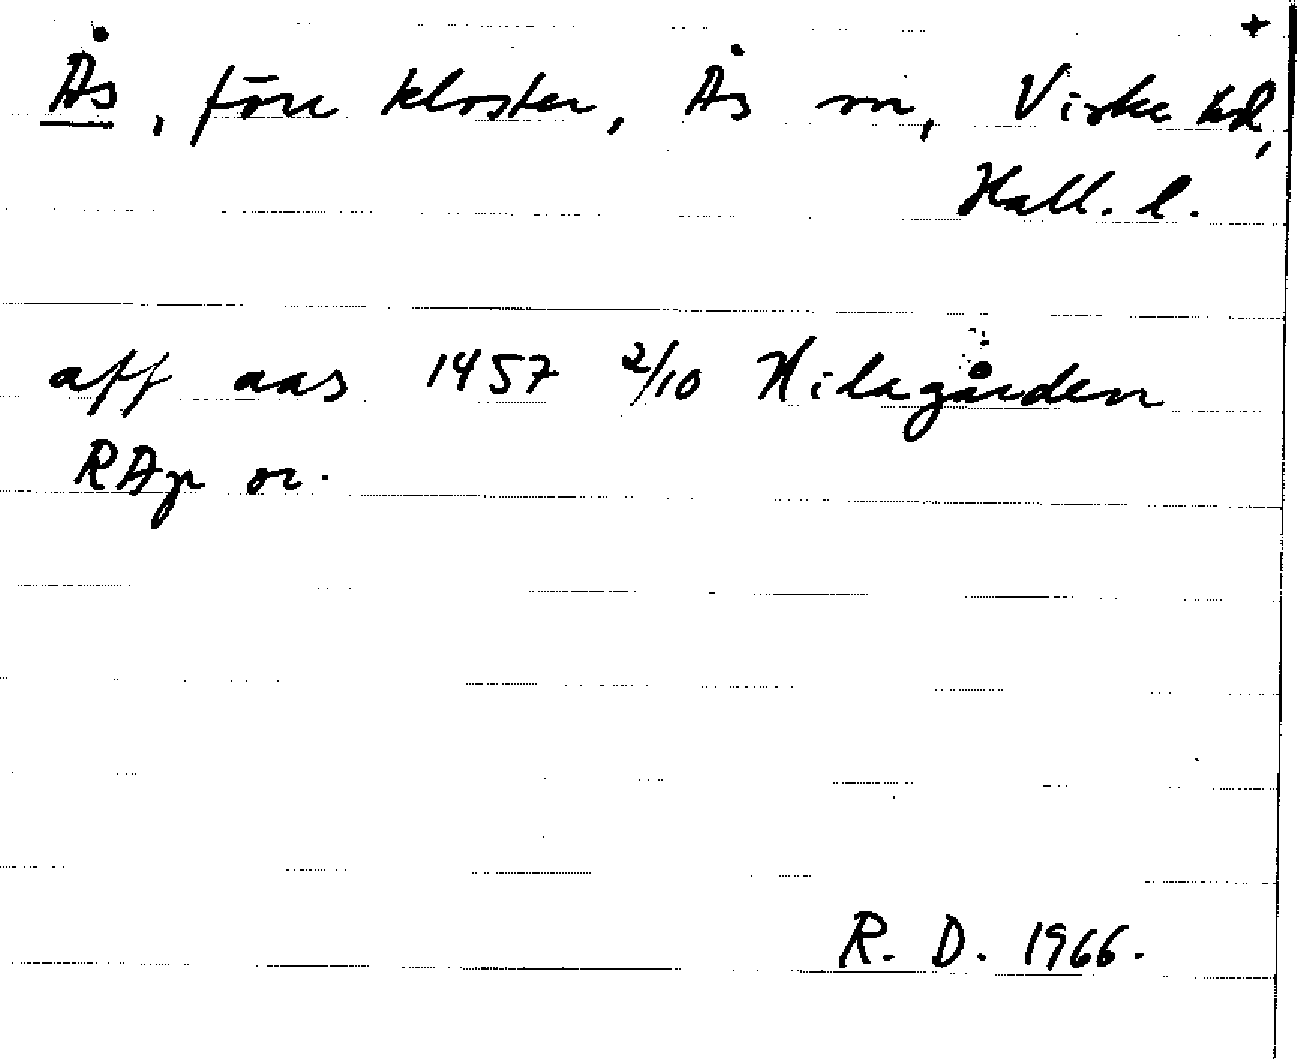 +
Ås, förr kloster, Ås sn, Viske hd,
Hall. l.
aff aas 1457 2/10 Hilagården
RAp or.
R. D. 1966.